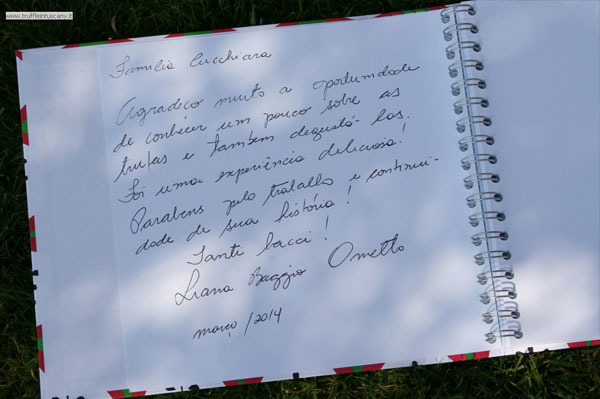 www.truffleintuscany.it
Familia Cucchiara
Agradeço muito a oportunidade
de conhecer um pouco sobre as
trufas e também degustá-las.
Foi uma experiência deliciosa!
Parabéns pelo trabalho e continui-
dade de sua história!
Tanti bacci!
Liana Baggio Ometto
março/2014